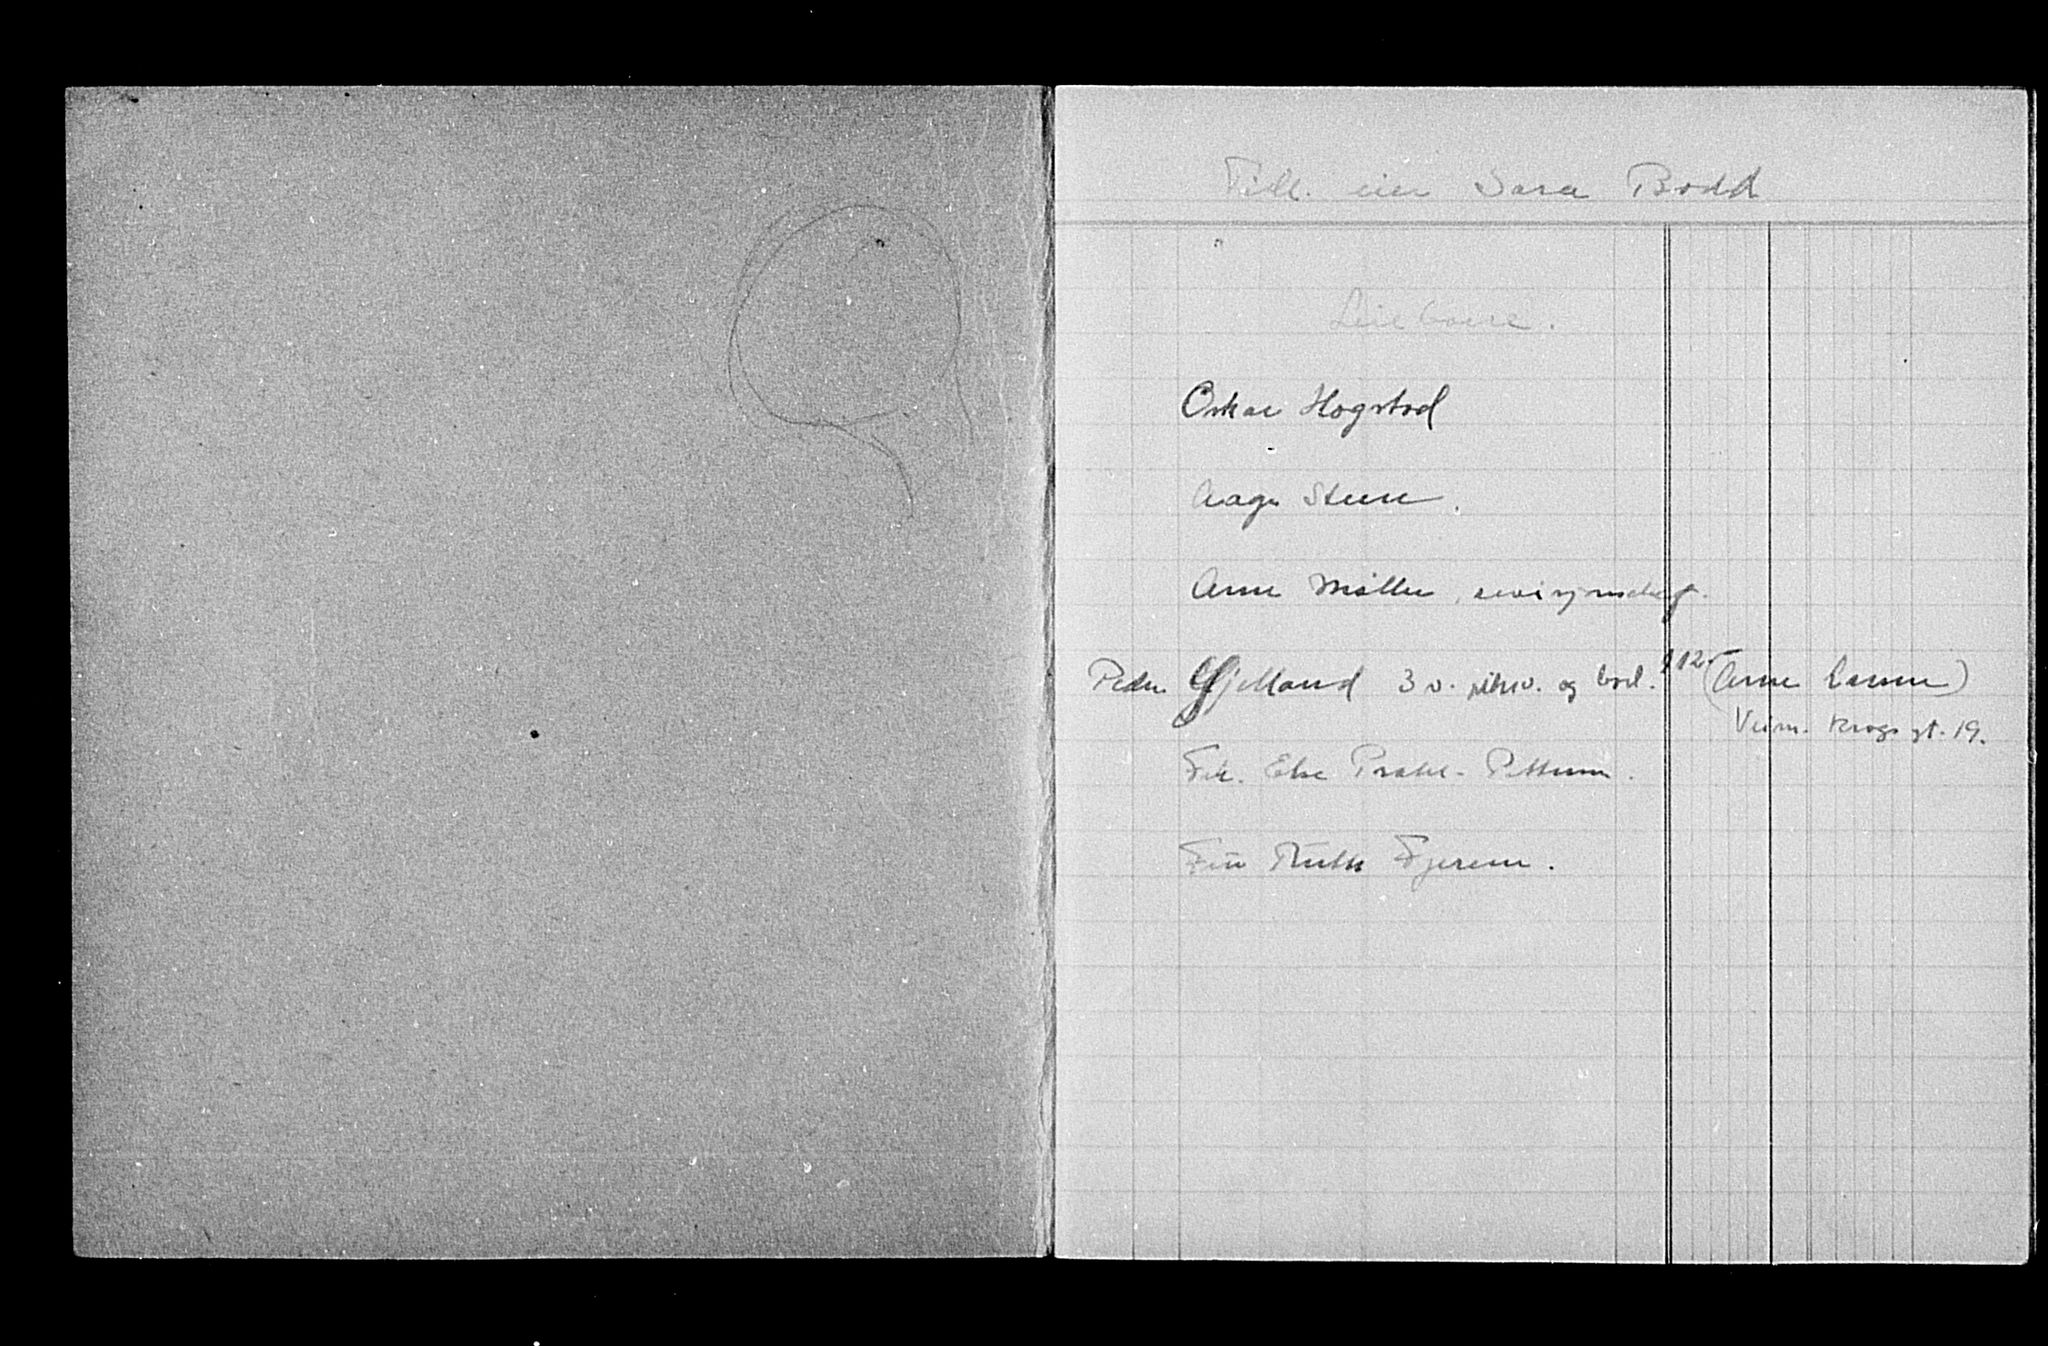 Tidl. eier Sara Bodd
Leieboere.
Oskar Hogstad
Aage Steen.
Arne Møller, revisjonschef.
Peder Gjelland 3 v. pikev. og bad. 112.- (Arne Larsen)
Krogs gt. 19.
Frk. Else Prahl-Pettersen.
Fru Ruth Fjeren.